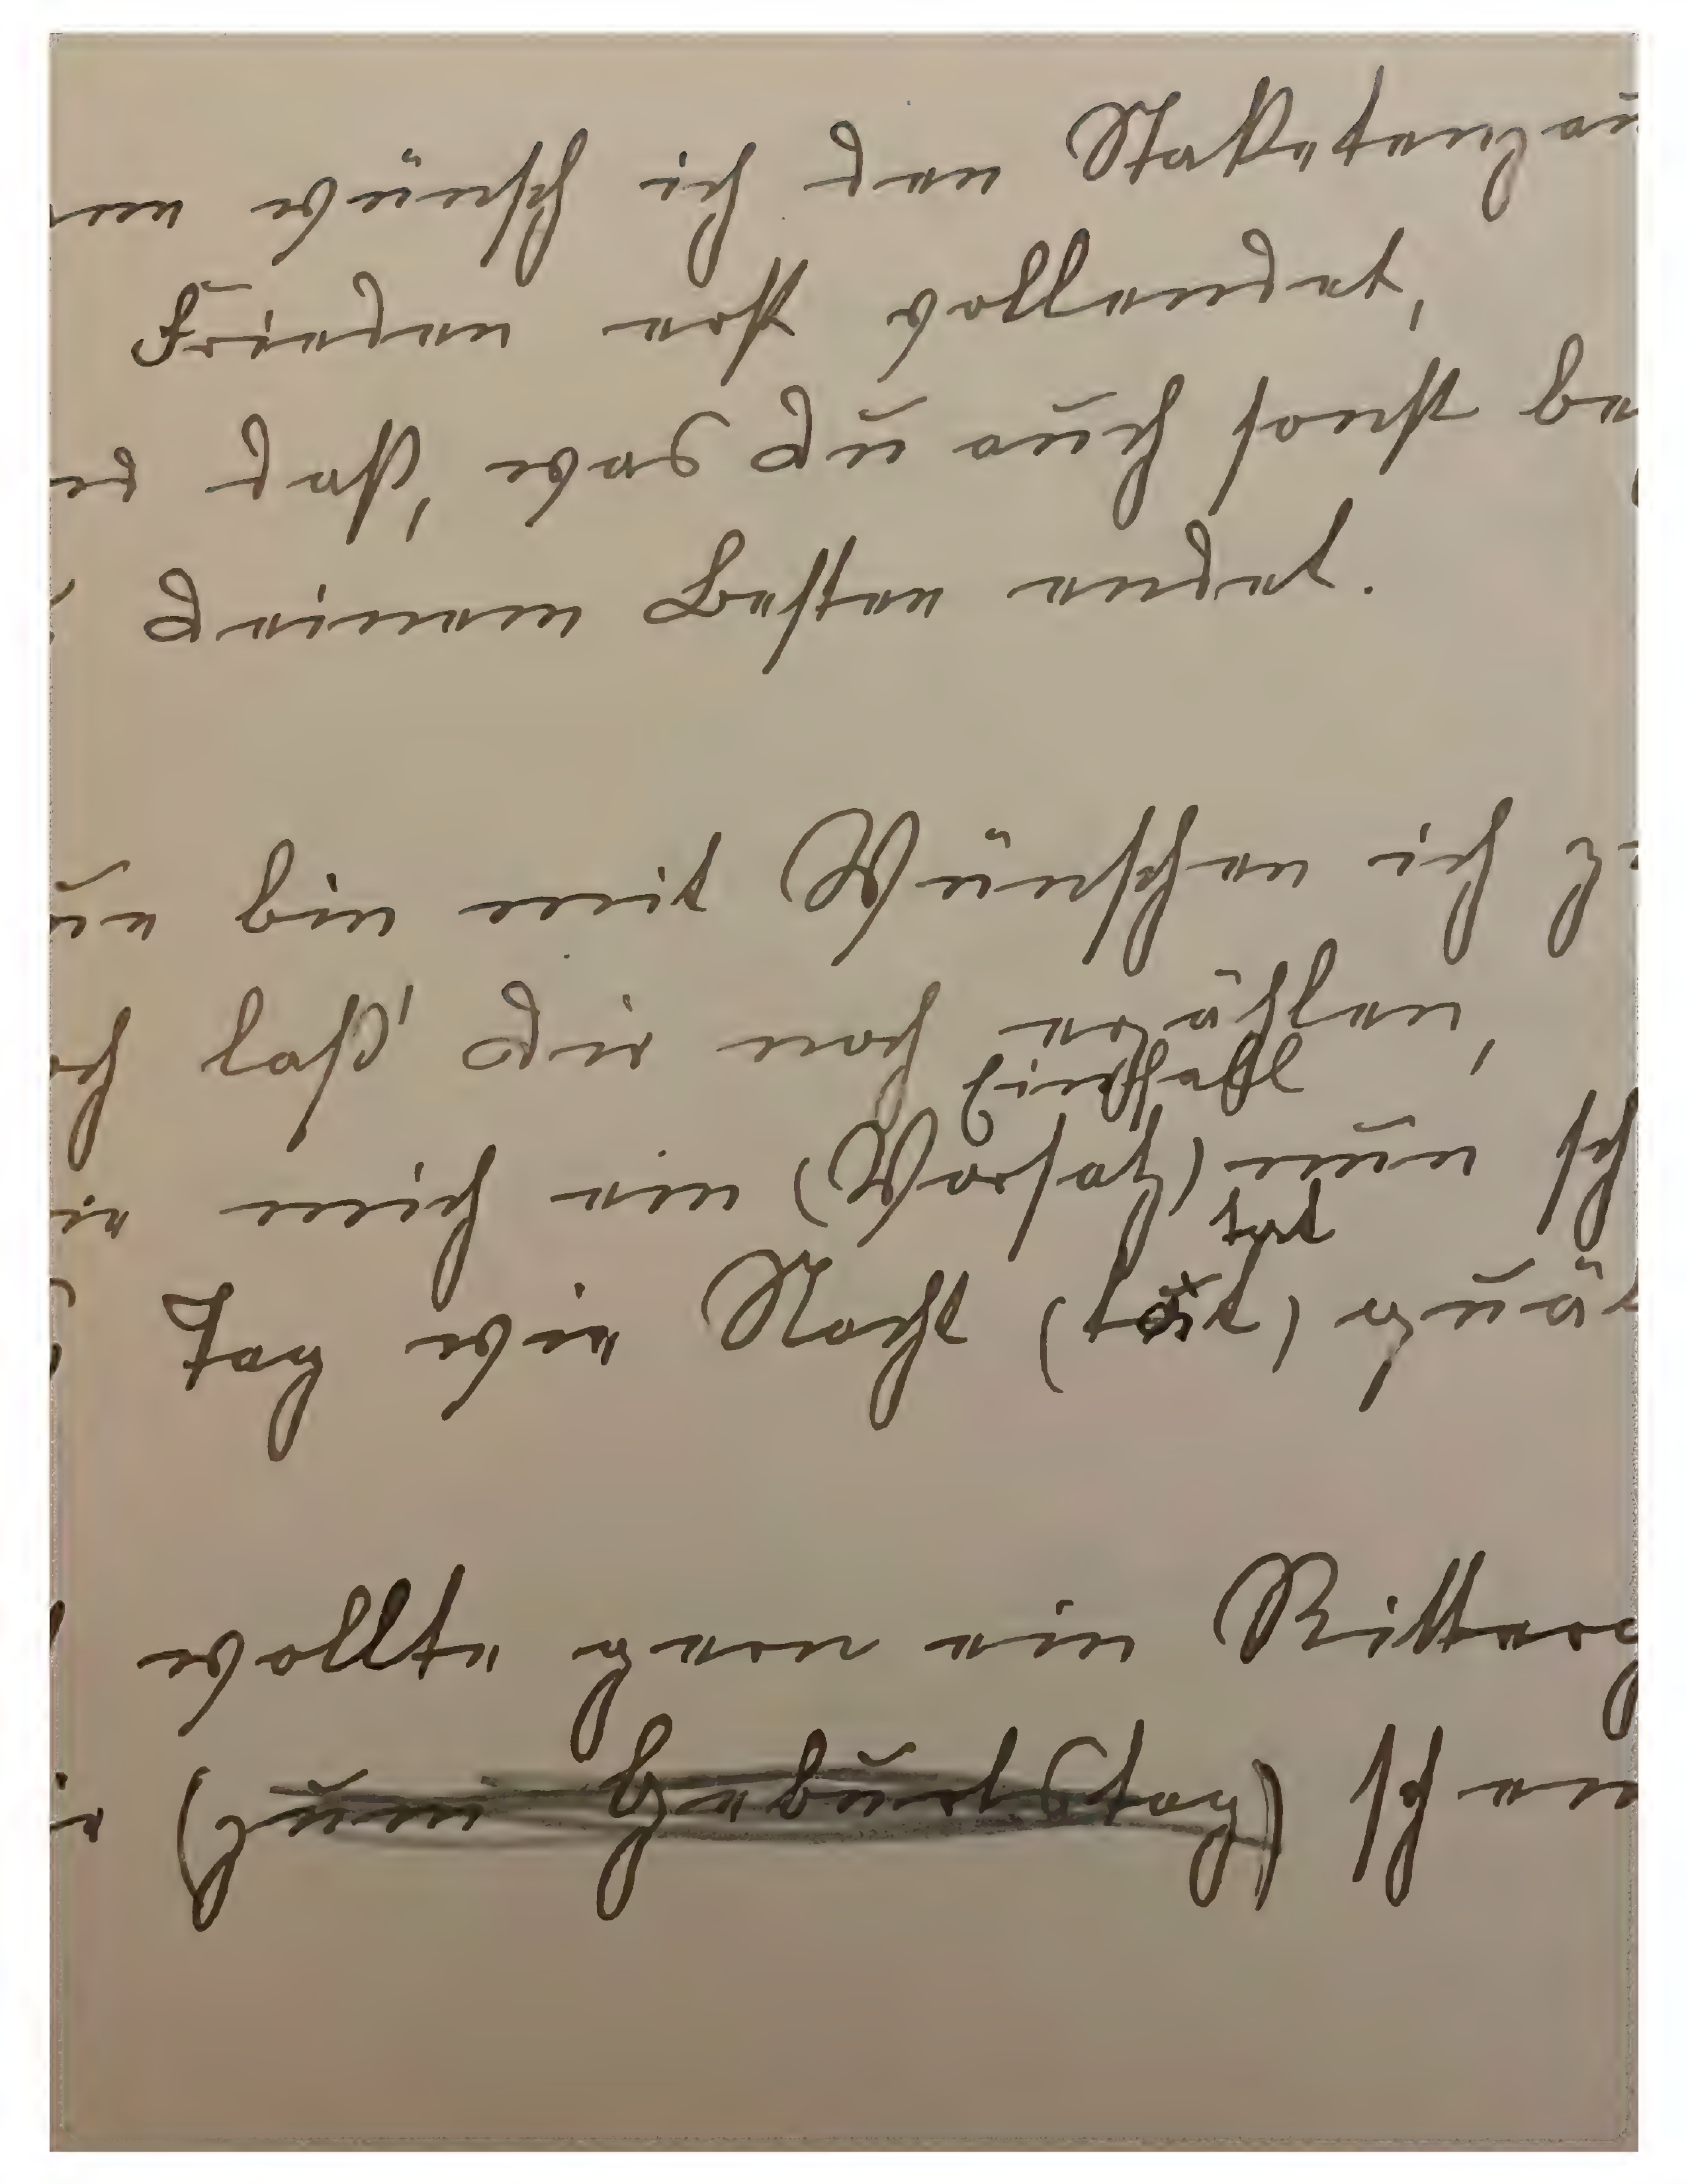 wünsch ich den Staketenzau
Frieden erst vollendet,
daß, was Du auch sonst be
Deinem Besten endet.
bin mit Wünschen ich z
laß' Dir noch erzählen,
Einfall
mich ein (Vorsatz) nun sch
tat
Tag wie Nacht (tät) quäl
wollte gern ein Ritterg
(zum Geburtstag) schen